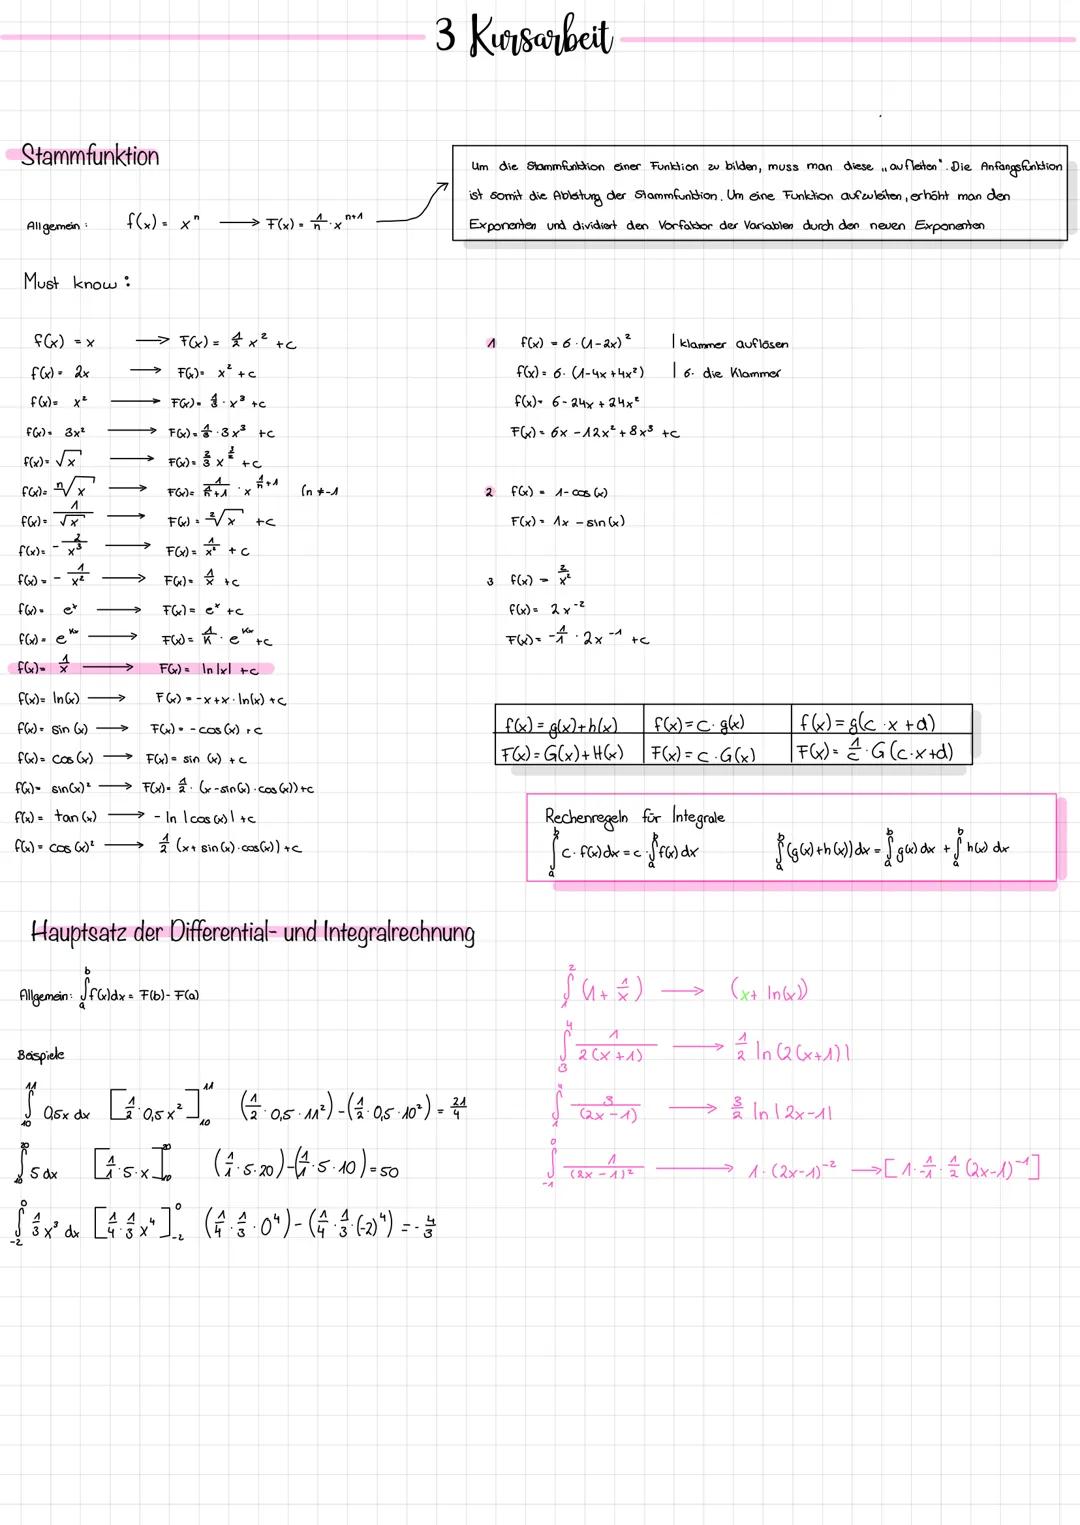 3 Kursarbeit
Stammfunktion
Allgemein: f(x) = xⁿ → F(x) = 1/n · xⁿ⁺¹
Um die Stammfunktion einer Funktion zu bilden, muss man diese „aufleiten". Die Anfangsfunktion
ist somit die Ableitung der Stammfunktion. Um eine Funktion aufzuleiten, erhöht man den
Exponenten und dividiert den Vorfaktor der Variablen durch den neuen Exponenten
Must know:
f(x) = x → F(x) = 1/2 x² + c
f(x) = 2x → F(x) = x² + c
f(x) = x² → F(x) = 1/3 · x³ + c
f(x) = 3x² → F(x) = 1/3 · 3x³ + c
f(x) = √x → F(x) = 2/3 x^(3/2) + c
f(x) = ⁿ√x → F(x) = 1/(1/n+1) · x^(1/n+1) (n ≠ -1
f(x) = 1/√x → F(x) = ²√x + c
f(x) = - 2/x³ → F(x) = 1/x² + c
f(x) = - 1/x² → F(x) = 1/x + c
f(x) = eˣ → F(x) = eˣ + c
f(x) = e^(kx) → F(x) = 1/k · e^(kx) + c
f(x) = 1/x → F(x) = ln|x| + c
f(x) = ln(x) → F(x) = -x + x · ln(x) + c
f(x) = sin(x) → F(x) = -cos(x) + c
f(x) = cos(x) → F(x) = sin(x) + c
f(x) = sin(x)² → F(x) = 1/2 · (x - sin(x) · cos(x)) + c
f(x) = tan(x) → - ln|cos(x)| + c
f(x) = cos(x)² → 1/2 (x + sin(x) · cos(x)) + c
1 f(x) = 6 · (1-2x)² | klammer auflösen
f(x) = 6 · (1-4x+4x²) | 6 · die Klammer
f(x) = 6 - 24x + 24x²
F(x) = 6x - 12x² + 8x³ + c
2 f(x) = 1 - cos(x)
F(x) = 1x - sin(x)
3 f(x) = 2/x²
f(x) = 2x⁻²
F(x) = - 1/1 · 2x⁻¹ + c
f(x) = g(x)+h(x) f(x) = c · g(x) f(x) = g(c · x + d)
F(x) = G(x)+H(x) F(x) = c · G(x) F(x) = 1/c · G(c·x+d)
Rechenregeln für Integrale
∫ₐᵇ c · f(x) dx = c · ∫ₐᵇ f(x) dx ∫ₐᵇ (g(x)+h(x)) dx = ∫ₐᵇ g(x) dx + ∫ₐᵇ h(x) dx
Hauptsatz der Differential- und Integralrechnung
Allgemein: ∫ₐᵇ f(x) dx = F(b) - F(a)
Beispiele
∫₁₀¹¹ 0,5x dx [1/2 · 0,5x²]₁₀¹¹ (1/2 · 0,5 · 11²) - (1/2 · 0,5 · 10²) = 21/4
∫₁₀²⁰ 5 dx [1/1 · 5 · x]₁₀²⁰ (1/1 · 5 · 20) - (1/1 · 5 · 10) = 50
∫₋₂⁰ 1/3 x³ dx [1/4 · 1/3 x⁴]₋₂⁰ (1/4 · 1/3 · 0⁴) - (1/4 · 1/3 · (-2)⁴) = - 4/3
∫₁² (1 + 1/x) → (x + ln(x))
∫₃⁴ 1/(2(x+1)) → 1/2 ln(2(x+1)|
∫ 3/(2x-1) → 3/2 ln|2x-1|
∫₋₁⁰ 1/(2x-1)² → 1 · (2x-1)⁻² → [1 · 1/-1 · 1/2 (2x-1)⁻¹]